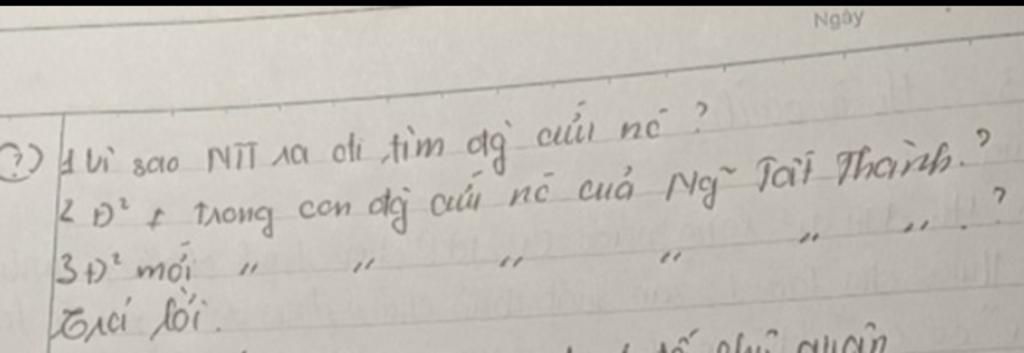 Ngày
(?) 1 Vì sao NTT ra đi tìm đg cứu nc?
2 Đ² + trong con đg cứu nc của Ng~ Tất Thành.?
3 Đ² mới " " " " " ".?
Trả lời.